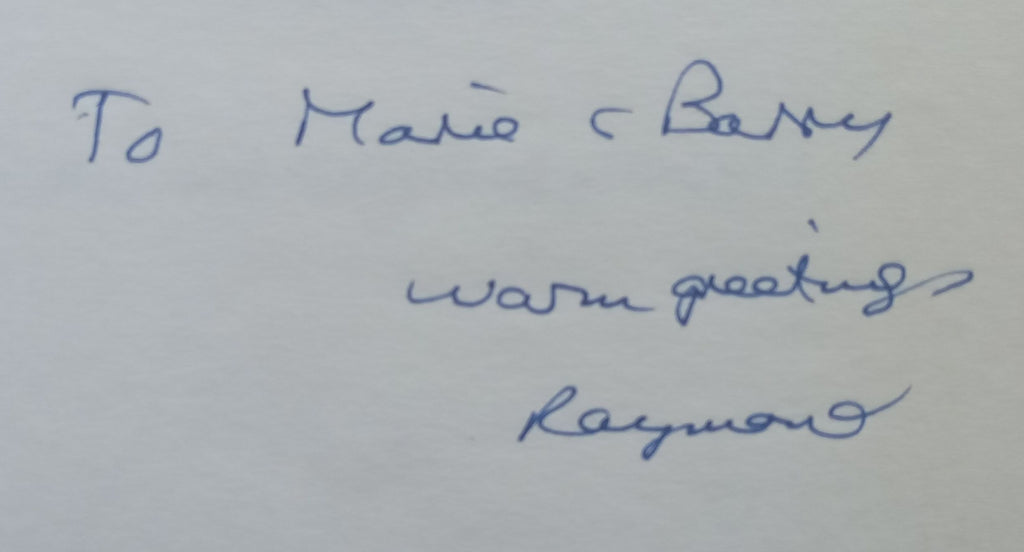 To Marie & Barry
warm greetings
Raymond